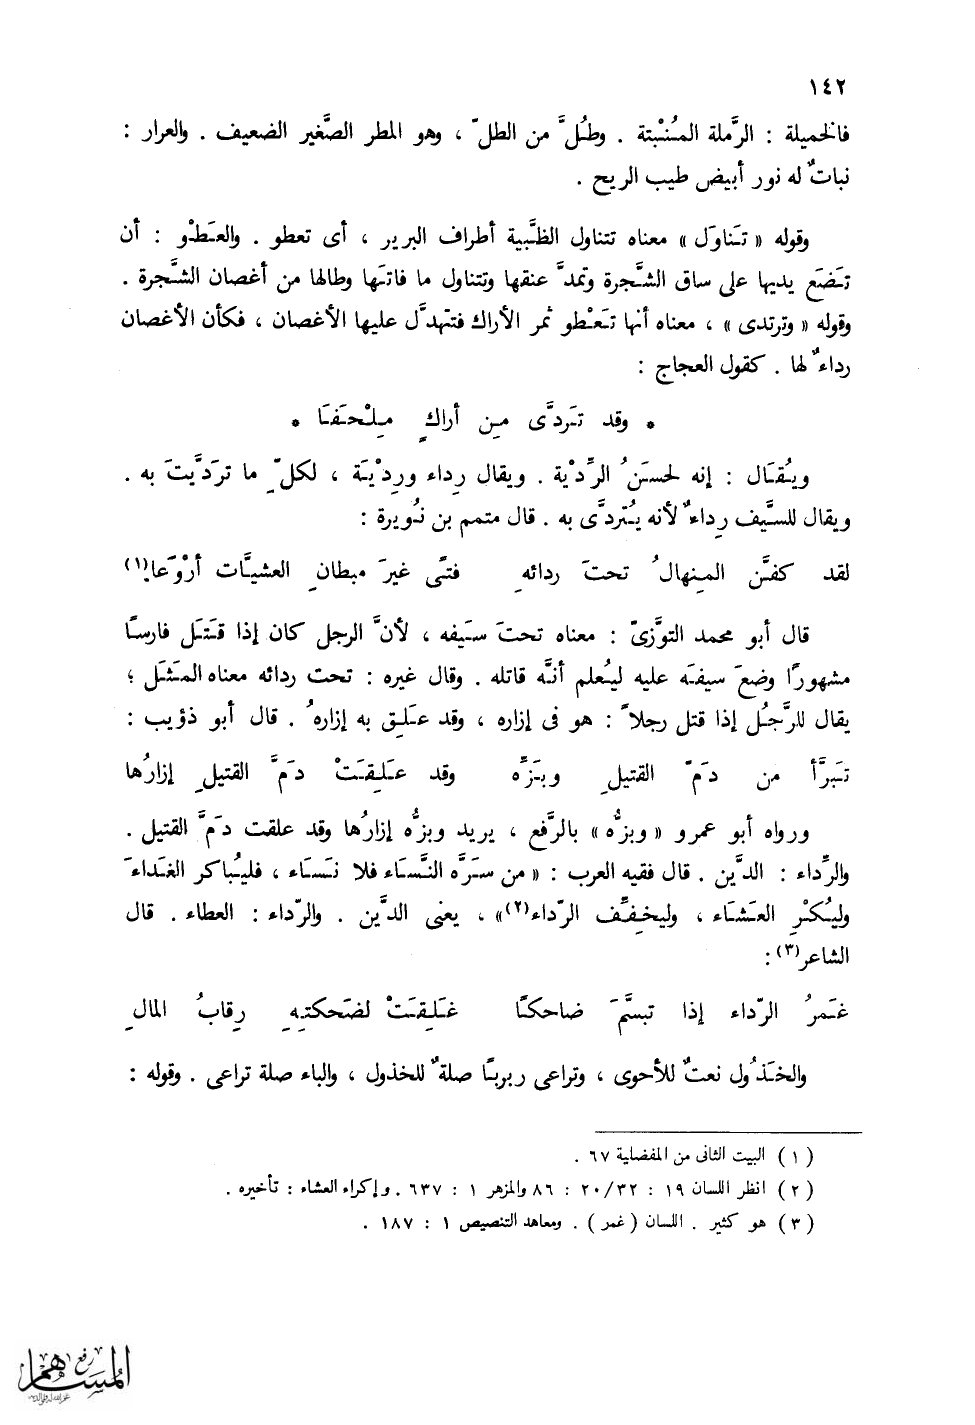 ١٤٢
فالخميلة : الرَّملة المُنْبتة . وطُلَّ من الطلّ ، وهو المطر الصَّغير الضعيف . والعرار :
نباتٌ له نور أبيض طيب الريح .
وقوله « تَناوَل » معناه تتناول الظَّبية أطراف البرير ، أى تعطو . والعَطْو : أن
تَضَع يديها على ساق الشَّجرة وتمدَّ عنقها وتتناول ما فاتَها وطالها من أغصان الشَّجرة .
وقوله « وترتدى » ، معناه أنها تَعْطو ثمر الأراك فتَهدَّل عليها الأغصان ، فكأن الأغصان
رداءٌ لها . كقول العجاج :
* وقد تَردَّى مِن أراكٍ مِلْحَفَا *
ويُقَال : إنه لحسَنُ الرِّدْية . ويقال رِداء ورِدْيَة ، لكلِّ ما تَردَّيتَ به .
ويقال للسَّيف رِداءٌ لأنه يُتردَّى به . قال متمم بن نُويرة :
لقد كفَّن المِنهالُ تحتَ ردائهِ فتًى غيرَ مبطانِ العشيَّات أرْوَعا(١)
قال أبو محمد التوَّزىّ : معناه تحتَ سيَفه ، لأنَّ الرجل كان إذا قَتَل فارسًا
مشهورًا وضعَ سيفَه عليه ليُعلم أنَّه قاتله . وقال غيره : تحت ردائه معناه المَثَل ؛
يقال للرَّجُل إذا قتل رجلاً : هو فى إزاره ، وقد عَلِق به إزارهُ . قال أبو ذؤيب :
تَبرَّأ من دَمّ القتيلِ وبَزِّه وقد عَلِقَتْ دَمَّ القتيلِ إزارُها
ورواه أبو عمرو « وبزُّه » بالرَّفع ، يريد وبزُّه إزارُها وقد علقت دَمَّ القتيل .
والرِّداء : الدَّين . قال فقيه العرب : « من سَرَّه النَّسَاء فلا نَسَاء ، فليُباكر الغَداءَ
وليُكْرِ العَشَاء ، وليخفِّف الرّداء(٢)» ، يعنى الدَّين . والرّداء : العطاء . قال
الشاعر(٣) :
غَمرُ الرّداء إذا تبسَّمَ ضاحكًا غَلِقَتْ لضَحكتِهِ رِقابُ المالِ
والخَذُول نعتٌ للأحوى ، وتراعى ربربًا صلةٌ للخذول ، والباء صلة تراعى . وقوله :
( ١ ) البيت الثانى من المفضلية ٦٧ .
( ٢ ) انظر اللسان ١٩ : ٢٠/٣٢ : ٨٦ والمزهر ١ : ٦٣٧ . وإكراء العشاء : تأخيره .
( ٣ ) هو كثير . اللسان ( غمر ) . ومعاهد التنصيص ١ : ١٨٧ .